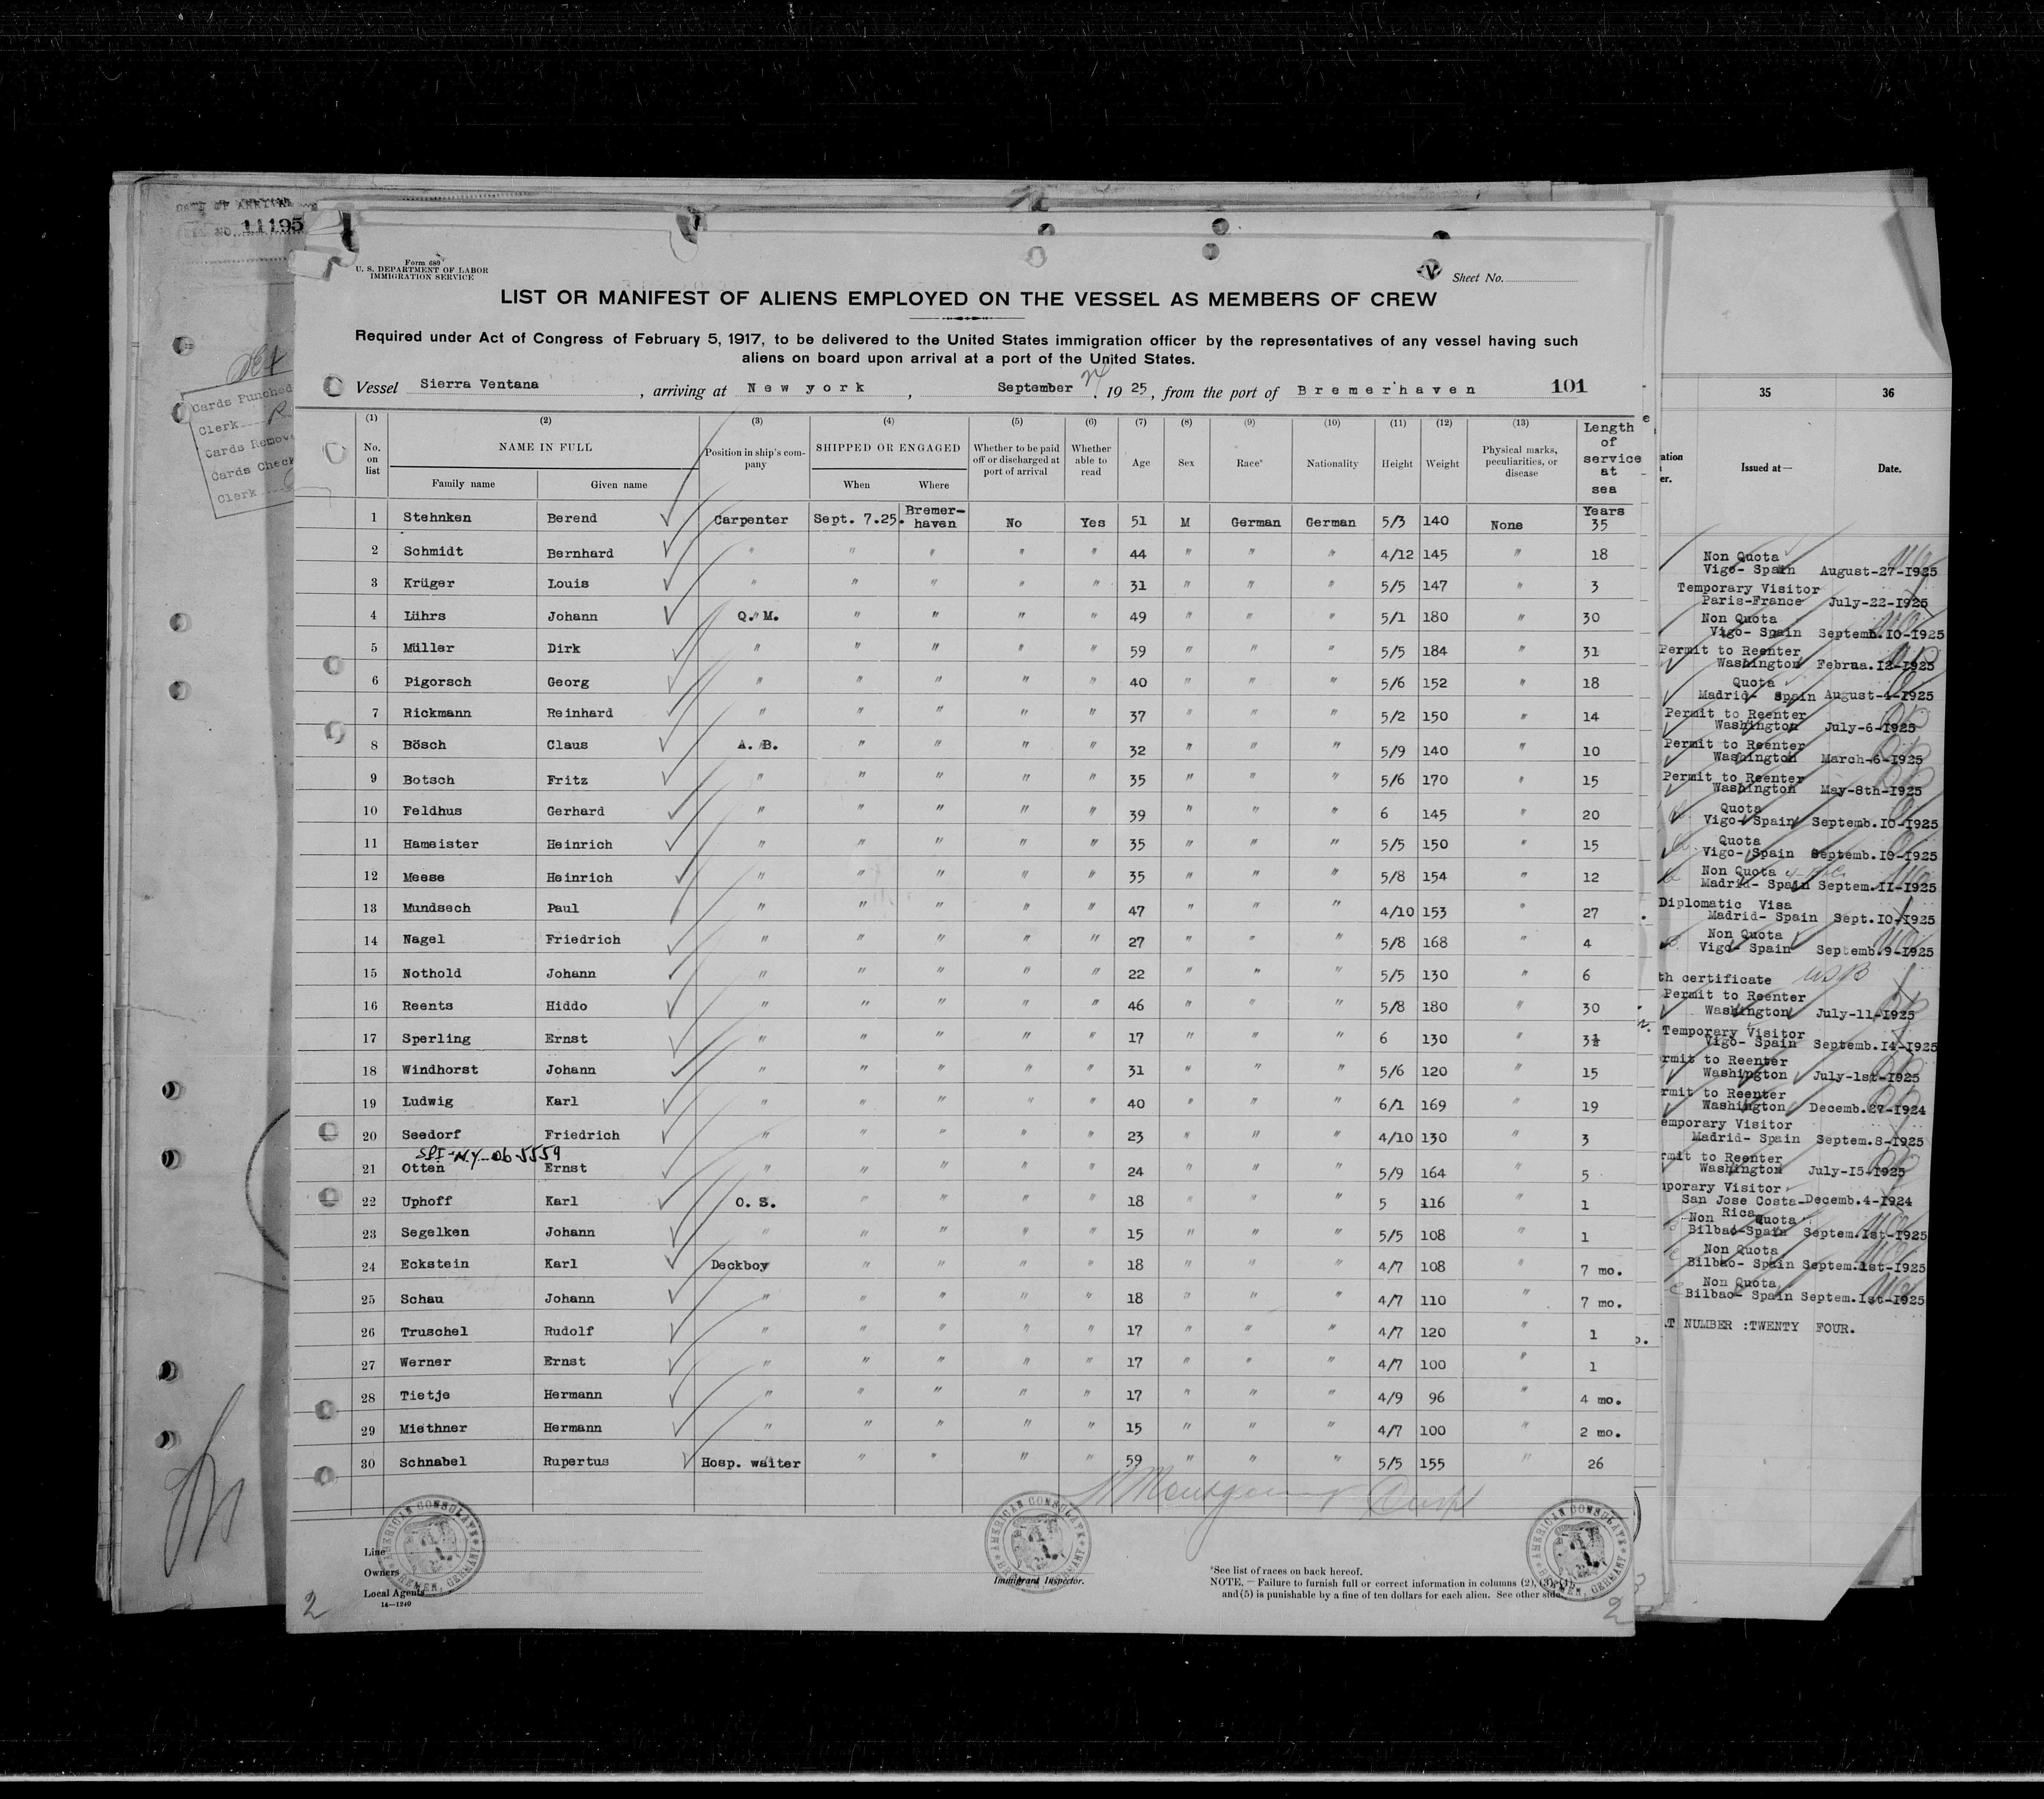 DATE OF ARRIVAL
NO. 11195
Cards Punched
Clerk
Cards Remov
Cards Check
Clerk
Form 680
U. S. DEPARTMENT OF LABOR
IMMIGRATION SERVICE
Sheet No.
LIST OR MANIFEST OF ALIENS EMPLOYED ON THE VESSEL AS MEMBERS OF CREW
Required under Act of Congress of February 5, 1917, to be delivered to the United States immigration officer by the representatives of any vessel having such
aliens on board upon arrival at a port of the United States.
Vessel Sierra Ventana, arriving at New york, September 24, 1925, from the port of Bremerhaven 101
(1) (2) (3) (4) (5) (6) (7) (8) (9) (10) (11) (12) (13)
No. on list NAME IN FULL Family name Given name Position in ship's company SHIPPED OR ENGAGED When Where Whether to be paid off or discharged at port of arrival Whether able to read Age Sex Race* Nationality Height Weight Physical marks, peculiarities, or disease Length of service at sea
1 Stehnken Berend Carpenter Sept. 7.25. Bremer-haven No Yes 51 M German German 5/3 140 None Years 35
2 Schmidt Bernhard " " " " " 44 " " " 4/12 145 " 18
3 Krüger Louis " " " " " 31 " " " 5/5 147 " 3
4 Lührs Johann Q. M. " " " " 49 " " " 5/1 180 " 30
5 Müller Dirk " " " " " 59 " " " 5/5 184 " 31
6 Pigorsch Georg " " " " " 40 " " " 5/6 152 " 18
7 Rickmann Reinhard " " " " " 37 " " " 5/2 150 " 14
8 Bösch Claus A. B. " " " " 32 " " " 5/9 140 " 10
9 Botsch Fritz " " " " " 35 " " " 5/6 170 " 15
10 Feldhus Gerhard " " " " " 39 " " " 6 145 " 20
11 Hameister Heinrich " " " " " 35 " " " 5/5 150 " 15
12 Meese Heinrich " " " " " 35 " " " 5/8 154 " 12
13 Mundsech Paul " " " " " 47 " " " 4/10 153 " 27
14 Nagel Friedrich " " " " " 27 " " " 5/8 168 " 4
15 Nothold Johann " " " " " 22 " " " 5/5 130 " 6
16 Reents Hiddo " " " " " 46 " " " 5/8 180 " 30
17 Sperling Ernst " " " " " 17 " " " 6 130 " 3½
18 Windhorst Johann " " " " " 31 " " " 5/6 120 " 15
19 Ludwig Karl " " " " " 40 " " " 6/1 169 " 19
20 Seedorf Friedrich " " " " " 23 " " " 4/10 130 " 3
SPI-N.Y-06-5559
21 Otten Ernst " " " " " 24 " " " 5/9 164 " 5
22 Uphoff Karl O. S. " " " " 18 " " " 5 116 " 1
23 Segelken Johann " " " " " 15 " " " 5/5 108 " 1
24 Eckstein Karl Deckboy " " " " 18 " " " 4/7 108 " 7 mo.
25 Schau Johann " " " " " 18 " " " 4/7 110 " 7 mo.
26 Truschel Rudolf " " " " " 17 " " " 4/7 120 " 1
27 Werner Ernst " " " " " 17 " " " 4/7 100 " 1
28 Tietje Hermann " " " " " 17 " " " 4/9 96 " 4 mo.
29 Miethner Hermann " " " " " 15 " " " 4/7 100 " 2 mo.
30 Schnabel Rupertus Hosp. waiter " " " " 59 " " " 5/5 155 " 26
Line
Owners
Local Agents
14—1240
Immigrant Inspector.
*See list of races on back hereof.
NOTE.—Failure to furnish full or correct information in columns (2), (3), (4)
and (5) is punishable by a fine of ten dollars for each alien. See other side.
AMERICAN CONSULATE BREMEN, GERMANY
AMERICAN CONSULATE BREMEN, GERMANY
AMERICAN CONSULATE BREMEN, GERMANY
2
2
35 36
Issued at— Date.
Non Quota
Vigo- Spain August-27-1925
Temporary Visitor
Paris-France July-22-1925
Non Quota
Vigo- Spain Septemb.10-1925
Permit to Reenter
Washington Februa.12-1925
Quota
Madrid- Spain August-4-1925
Permit to Reenter
Washington July-6-1925
Permit to Reenter
Washington March-6-1925
Permit to Reenter
Washington May-8th-1925
Quota
Vigo-Spain Septemb.10-1925
Quota
Vigo-Spain Septemb.10-1925
Non Quota
Madrid- Spain Septem.11-1925
Diplomatic Visa
Madrid- Spain Sept.10-1925
Non Quota
Vigo- Spain Septemb.9-1925
th certificate USB
Permit to Reenter
Washington July-11-1925
Temporary Visitor
Vigo- Spain Septemb.14-1925
rmit to Reenter
Washington July-1st-1925
rmit to Reenter
Washington Decemb.27-1924
emporary Visitor
Madrid- Spain Septem.8-1925
rmit to Reenter
Washington July-15-1925
mporary Visitor
San Jose Costa-Decemb.4-1924
Rica
Non Quota
Bilbao-Spain Septem.1st-1925
Non Quota
Bilbao- Spain Septem.1st-1925
Non Quota
Bilbao- Spain Septem.1st-1925
T NUMBER :TWENTY FOUR.